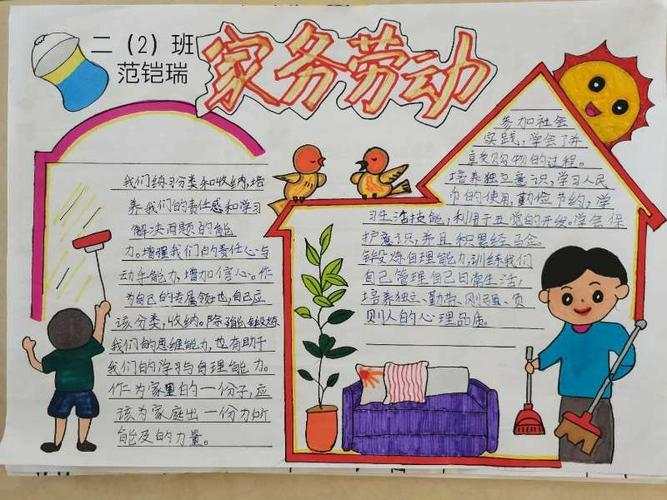 二（2）班
范铠瑞
家务劳动
我们练习分类和收纳，培
养我们的责任感和学习
解决问题的能
力。增强我们的责任心与
动手能力，增加信心。作
为自己的专属领地，自己应
该分类，收纳。除能锻炼
我们的思维能力，也有助于
我们的学习与自理能力。
作为家里的一份子，应
该为家庭出一份力所
能及的力量。
参加社会
实践，学会了并
购物的过程。
培养独立意识，学习人民
币的使用，勤俭节约，学
习生活技能，利用于五觉的开发。学会保
护意识，并且积累经
锻炼自理能力，训练我们
自己管理自己日常生活，
培养独立、勤劳、刚强、负
责人的心理品质。